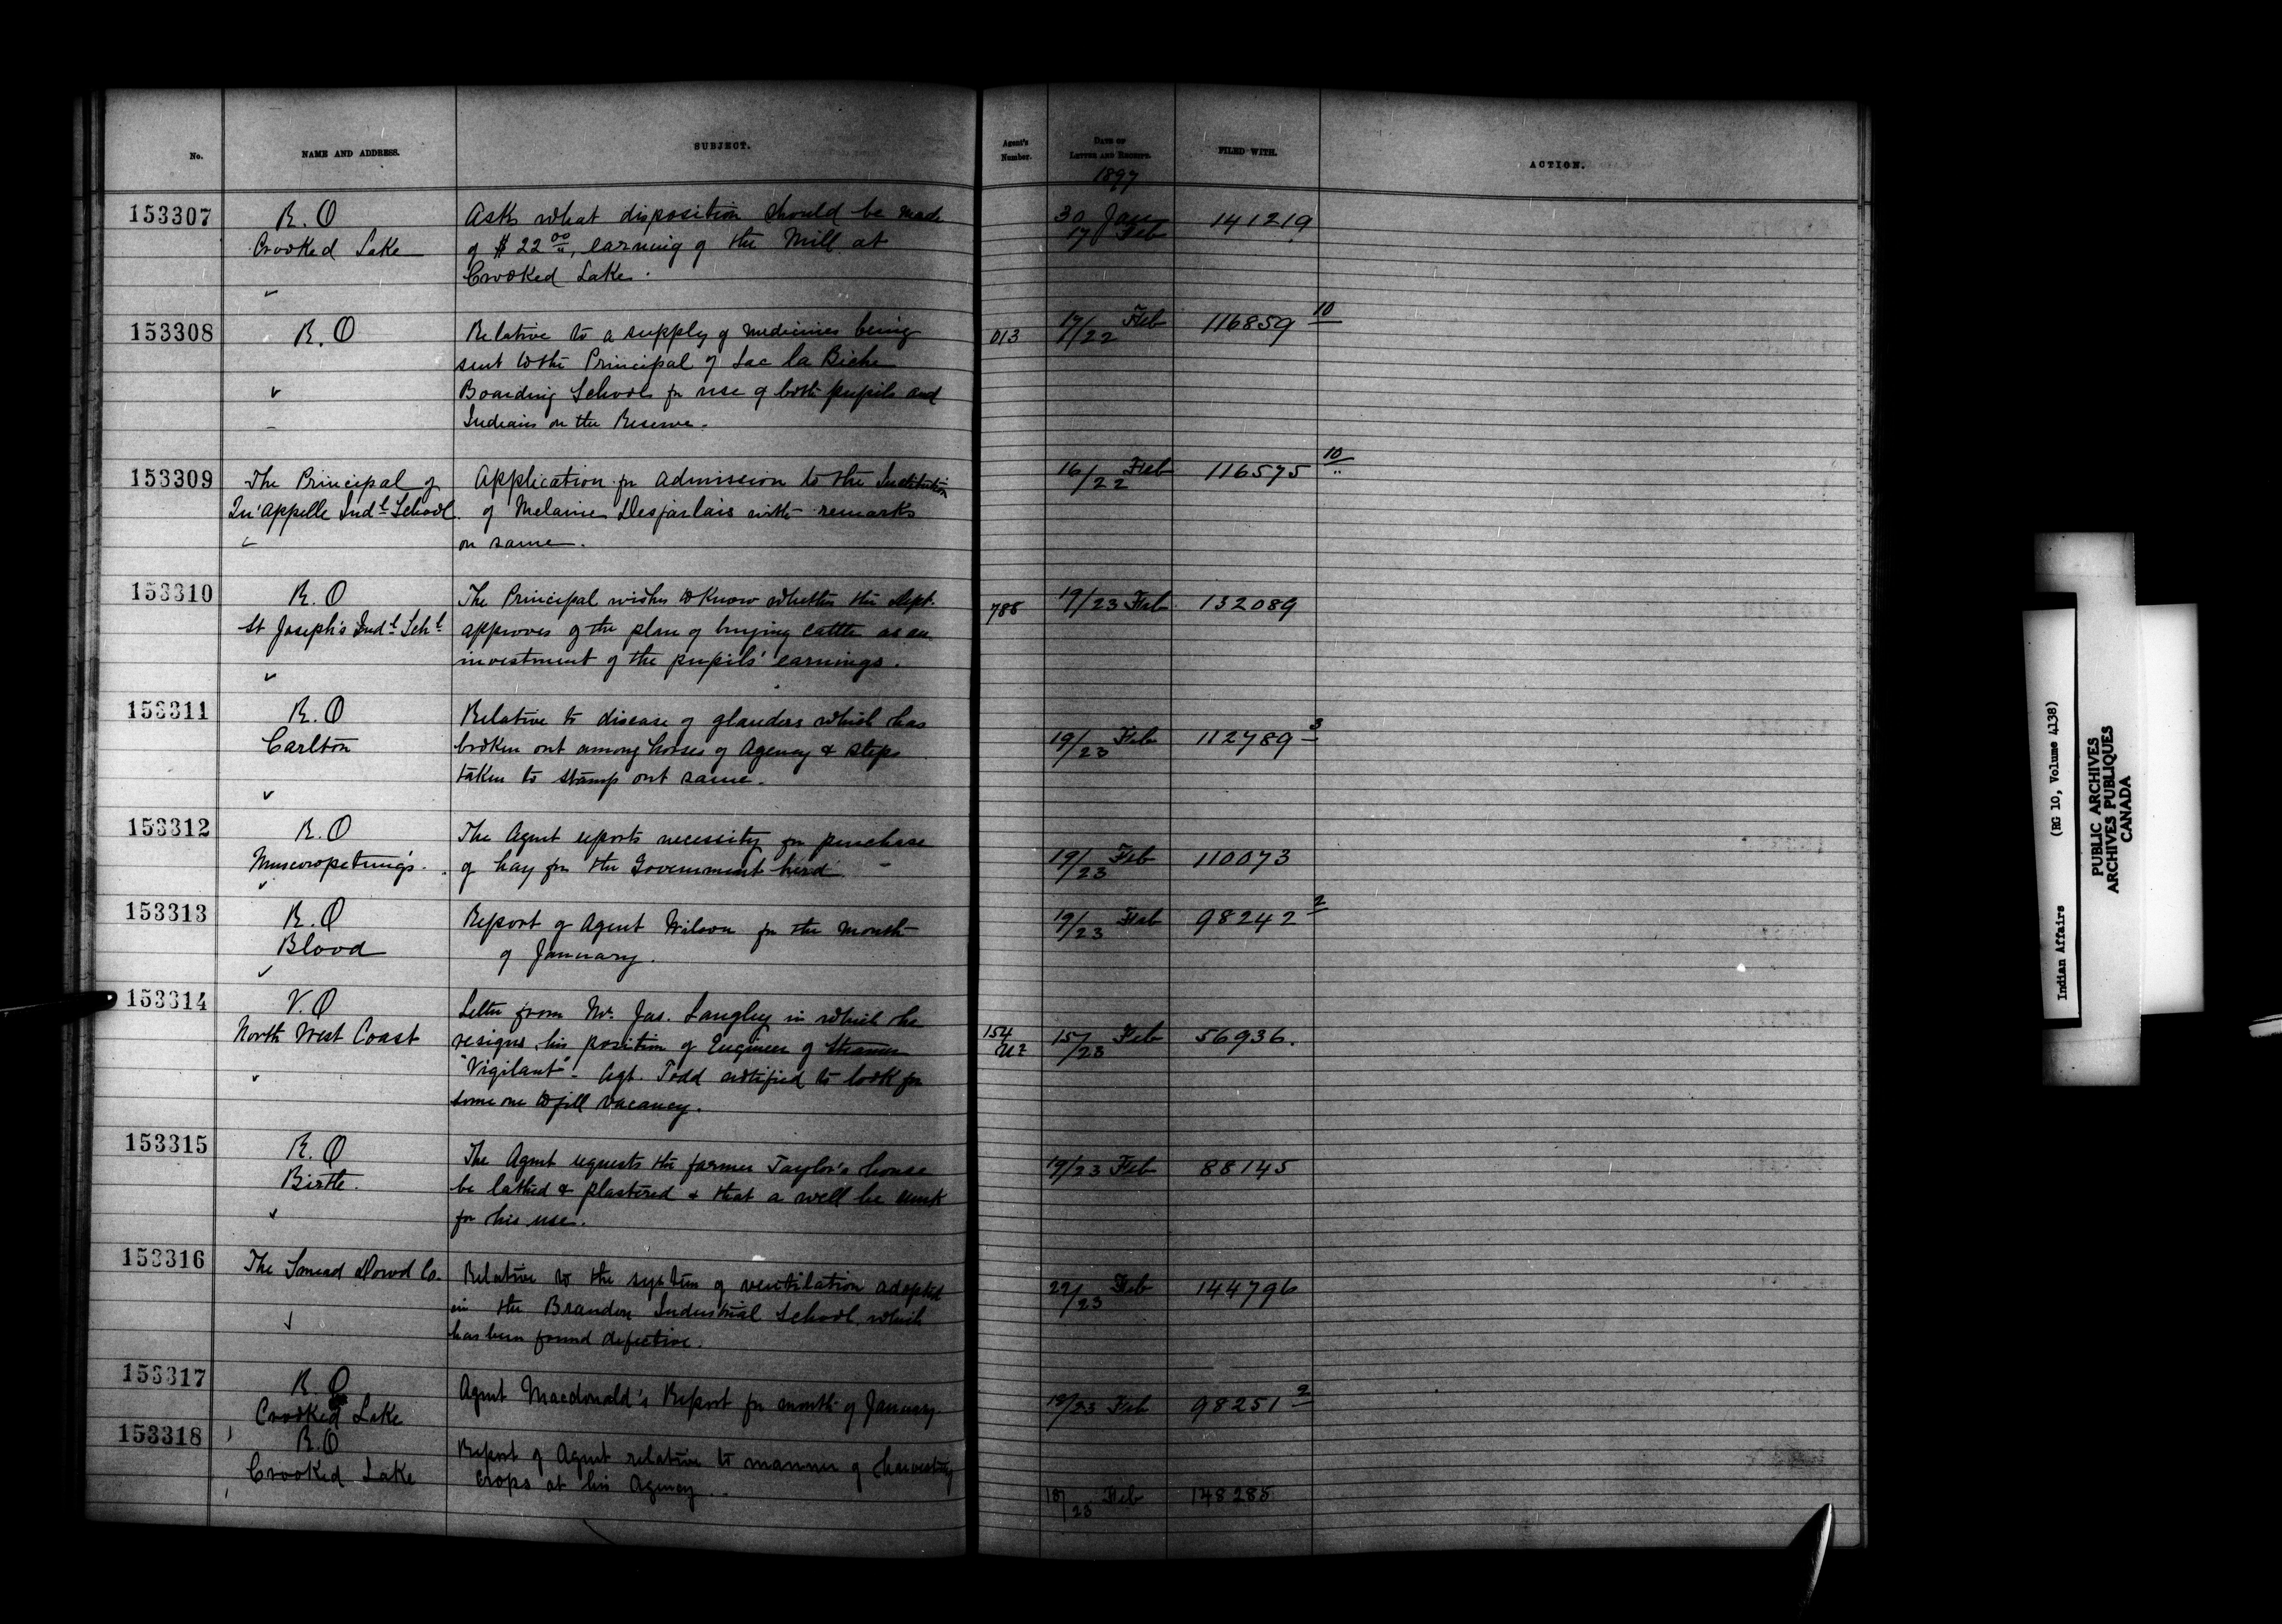 No. NAME AND ADDRESS. SUBJECT. Agent's Number. DATE OF LETTER AND RECEIPT. FILED WITH. ACTION.
1897
153307 R.O Asks what disposition should be made 30 Jan 141219
Crooked Lake of $22 00/", earning of the Mill at 17 Feb
Crooked Lake.
153308 R.O Relative to a supply of medicines being 013 17/22 Feb 116859 10
sent to the Principal of Lac la Biche
Boarding School for use of both pupils and
Indians on the Reserve.
153309 The Principal of Application for admission to the Institution 16/22 Feb 116575 10
Qu'appelle Indl School. of Melanie Desjarlais with remarks
on same.
153310 R.O The Principal wishes to know whether the Dept. 788 19/23 Feb. 132089
St Joseph's Indl Schl approves of the plan of buying cattle as an
investment of the pupils' earnings.
153311 R.O Relative to disease of glanders which has
Carlton broken out among horses of Agency & steps 19/23 Feb 112789 3
taken to stamp out same.
153312 R.O The Agent reports necessity for purchase
Muscowpetung's. of hay for the Government herd. 19/23 Feb 110073
153313 R.O Report of Agent Wilson for the month 19/23 Feb 98242 2
Blood of January.
153314 V.O Letter from Mr. Jas. Langley in which he
North West Coast resigns his position of Engineer of Steamer 154 15/23 Feb 56936.
"Vigilant" - Agt. Todd notified to look for
some one to fill vacancy.
153315 R.O The Agent requests the farmer Taylor's house 19/23 Feb 88145
Birtle. be lathed & plastered & that a well be sunk
for his use.
153316 The Smead Dowd Co. Relative to the system of ventilation adopted 22/23 Feb 144796
in the Brandon Industrial School, which
has been found defective.
153317 R.O Agent Macdonald's Report for month of January 19/23 Feb 98251 2
Crooked Lake
153318 R.O Report of Agent relative to manner of harvesting
Crooked Lake crops at his Agency. 18/23 Feb 148285
Indian Affairs (RG 10, Volume 4138)
PUBLIC ARCHIVES
ARCHIVES PUBLIQUES
CANADA